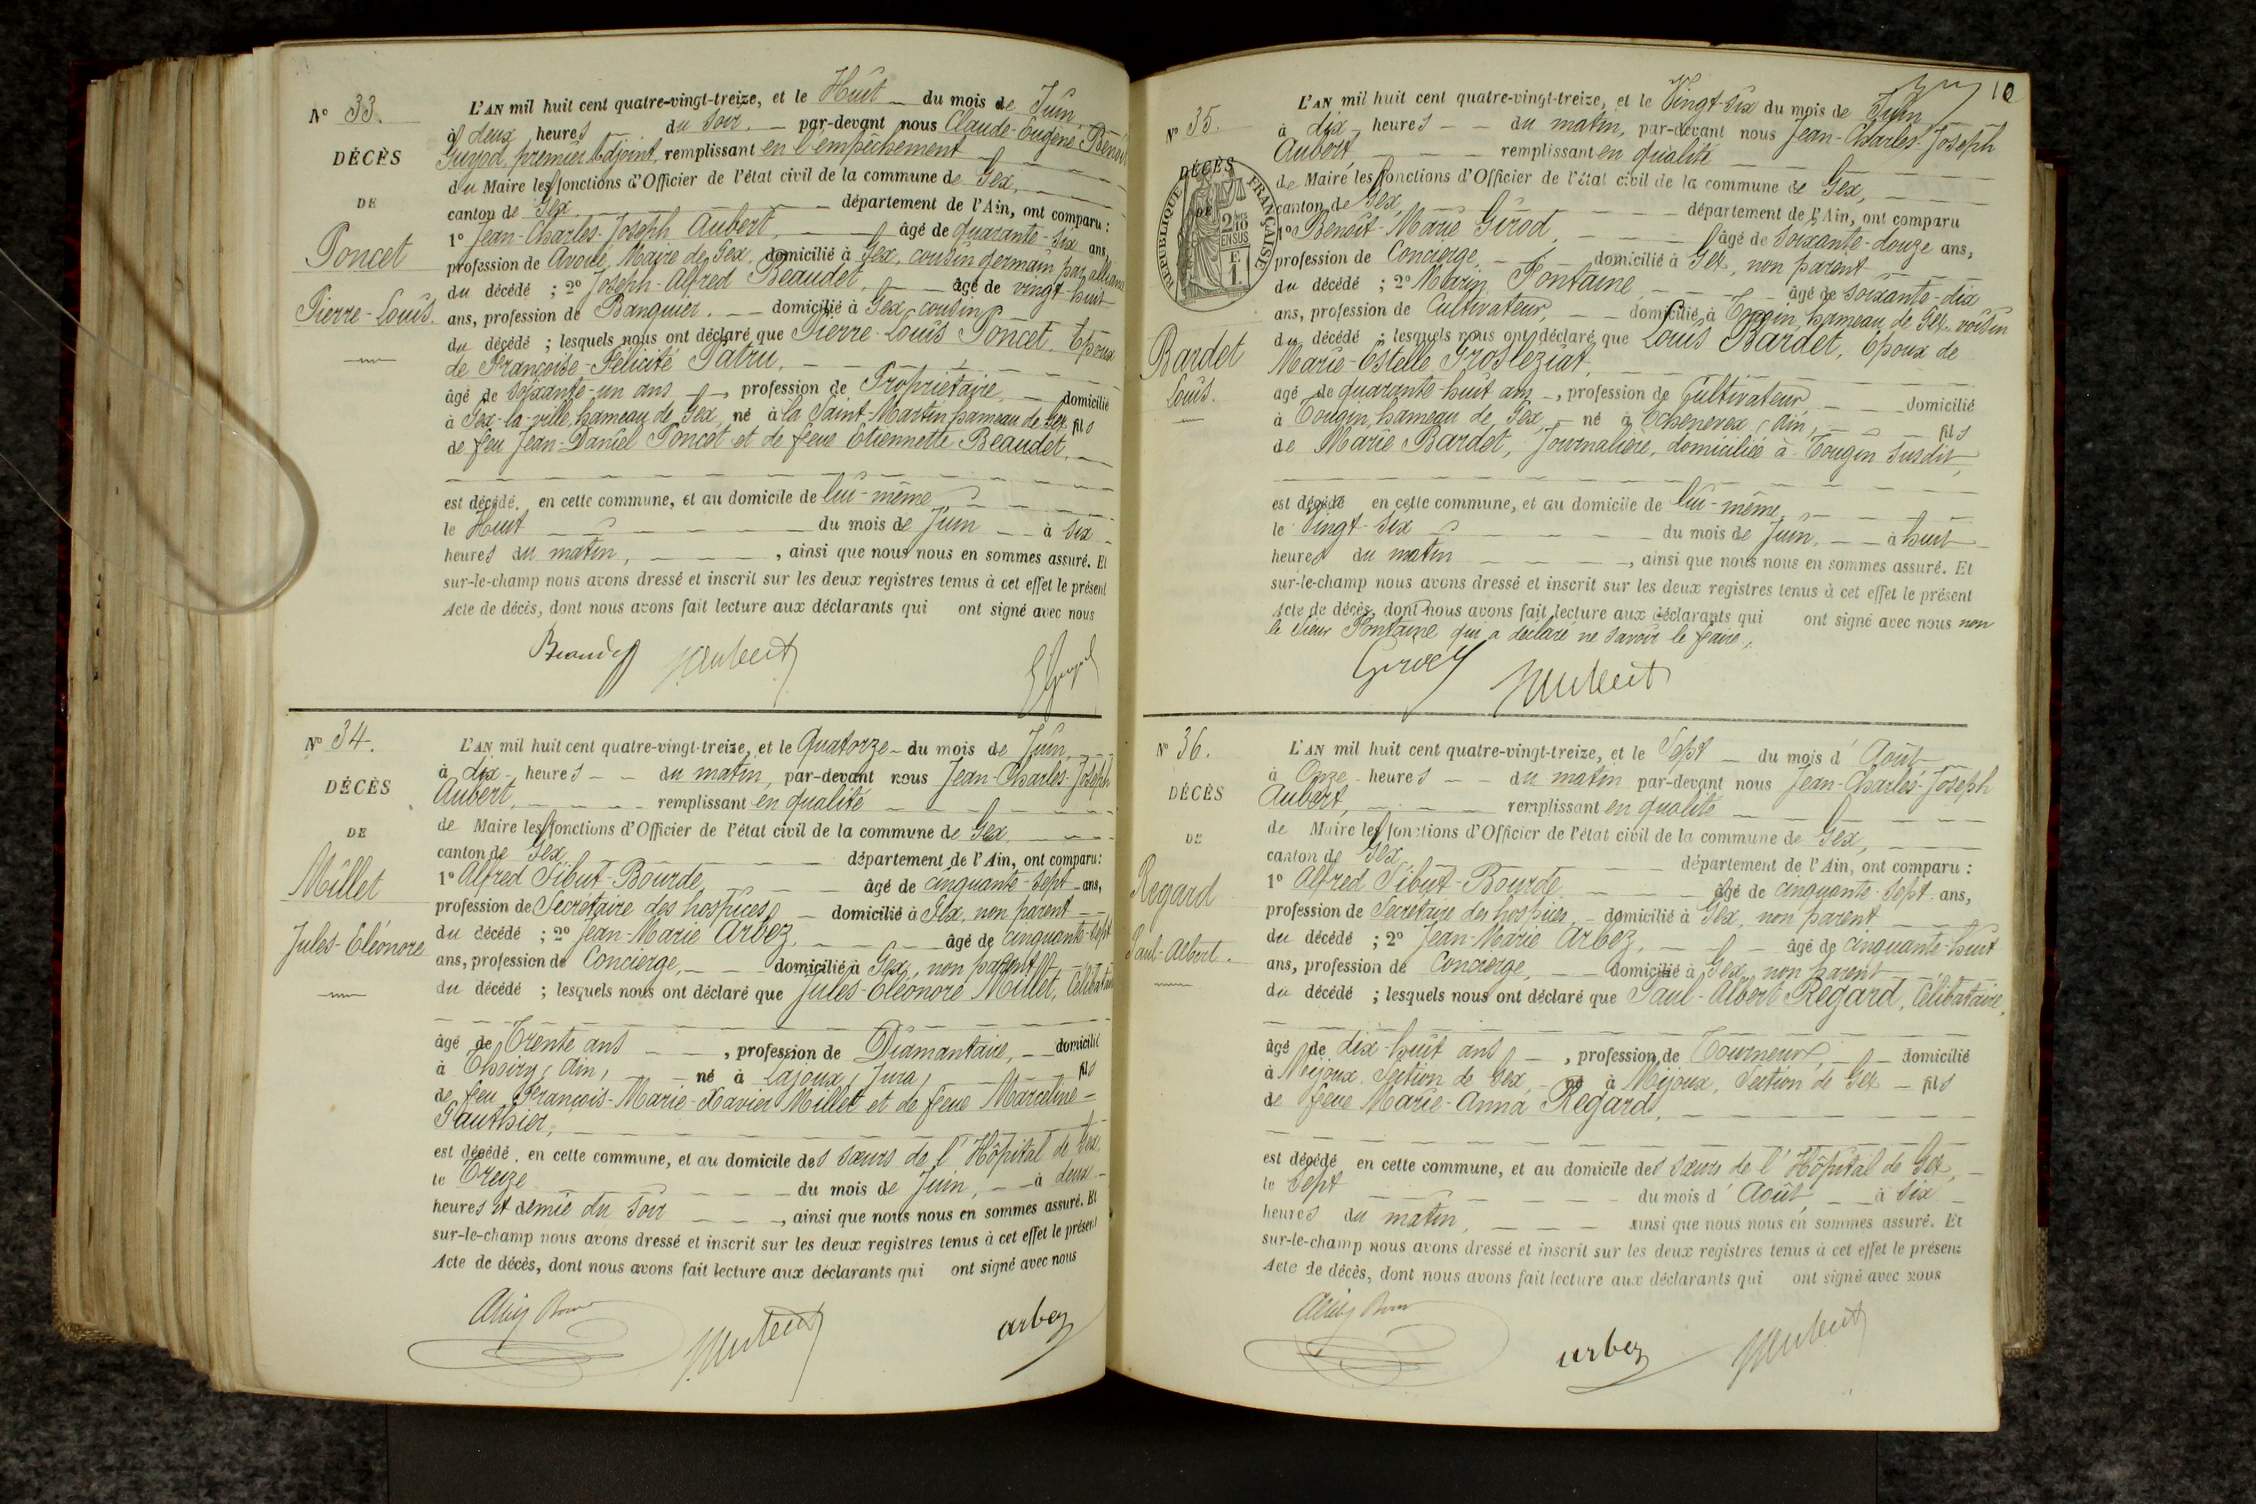 N° 33.
DÉCÈS
DE
Poncet
Pierre-Louis.
L'AN mil huit cent quatre-vingt-treize, et le Huit du mois de Juin,
à deux heures du soir, par-devant nous Claude-Eugène Benoit
Guyod, premier Adjoint, remplissant en l'empêchement
du Maire les fonctions d'Officier de l'état civil de la commune de Gex,
canton de Gex département de l'Ain, ont comparu :
1° Jean-Charles-Joseph Aubert, âgé de quarante-six ans,
profession de Avoué, Maire de Gex, domicilié à Gex, cousin germain par alliance
du décédé ; 2° Joseph-Alfred Beaudet, âgé de vingt-huit
ans, profession de Banquier, domicilié à Gex, cousin
du décédé ; lesquels nous ont déclaré que Pierre-Louis Poncet, Epoux
de Françoise-Félicité Patru,
âgé de soixante-un ans, profession de Propriétaire, domicilié
à Gex-la-ville, hameau de Gex, né à la Saint-Martin hameau de Gex, fils
de feu Jean-Daniel Poncet et de feue Etiennette Beaudet,
est décédé, en cette commune, et au domicile de lui-même
le Huit du mois de Juin à six
heures du matin, , ainsi que nous nous en sommes assuré. Et
sur-le-champ nous avons dressé et inscrit sur les deux registres tenus à cet effet le présent
Acte de décès, dont nous avons fait lecture aux déclarants qui ont signé avec nous
Beaudet JAubert
N° 34.
DÉCÈS
DE
Millet
Jules-Eléonore
L'AN mil huit cent quatre-vingt-treize, et le Quatorze du mois de Juin,
à dix heures du matin, par-devant nous Jean-Charles-Joseph
Aubert, remplissant en qualité
de Maire les fonctions d'Officier de l'état civil de la commune de Gex
canton de Gex département de l'Ain, ont comparu :
1° Alfred Sibut-Bourde âgé de cinquante-sept ans,
profession de Secrétaire des hospices, domicilié à Gex, non parent
du décédé ; 2° Jean-Marie Arbez, âgé de cinquante-sept
ans, profession de Concierge, domicilié à Gex, non parent
du décédé ; lesquels nous ont déclaré que Jules-Eléonore Millet, Célibataire
âgé de Trente ans , profession de Diamantaire, domicilié
à Thoiry, Ain, né à Lajoux, Jura, fils
de feu François-Marie-Xavier Millet et de feue Marceline
Gauthier,
est décédé, en cette commune, et au domicile des sœurs de l'Hôpital de Gex
le Treize du mois de Juin, à deux
heures et demie du soir , ainsi que nous nous en sommes assuré. Et
sur-le-champ nous avons dressé et inscrit sur les deux registres tenus à cet effet le présent
Acte de décès, dont nous avons fait lecture aux déclarants qui ont signé avec nous
JAubert arbez
10
N° 35.
DÉCÈS
DE
RÉPUBLIQUE FRANÇAISE
2/10 EN SUS
Bardet
Louis.
L'AN mil huit cent quatre-vingt-treize, et le Vingt-six du mois de Juin
à dix heures du matin, par-devant nous Jean-Charles-Joseph
Aubert, remplissant en qualité
de Maire les fonctions d'Officier de l'état civil de la commune de Gex,
canton de Gex, département de l'Ain, ont comparu
1° Benoît-Marie Girod, âgé de soixante-douze ans,
profession de Concierge, domicilié à Gex, non parent
du décédé ; 2° Marin Fontaine âgé de soixante-dix
ans, profession de Cultivateur, domicilié à Tougin, hameau de Gex, voisin
du décédé ; lesquels nous ont déclaré que Louis Bardet, Epoux de
Marie-Estelle Grosléziat,
âgé de quarante-huit ans, profession de Cultivateur, domicilié
à Tougin, hameau de Gex, né à Echenevex, Ain, fils
de Marie Bardet, Journalière, domiciliée à Tougin susdit,
est décédé en cette commune, et au domicile de lui-même,
le Vingt-six du mois de Juin, à huit
heures du matin , ainsi que nous nous en sommes assuré. Et
sur-le-champ nous avons dressé et inscrit sur les deux registres tenus à cet effet le présent
Acte de décès, dont nous avons fait lecture aux déclarants qui ont signé avec nous non
le sieur Fontaine qui a déclaré ne savoir le faire.
Girod JAubert
N° 36.
DÉCÈS
DE
Regard
Paul-Albert.
L'AN mil huit cent quatre-vingt-treize, et le Sept du mois d'Août
à Onze heures du matin par-devant nous Jean-Charles-Joseph
Aubert, remplissant en qualité
de Maire les fonctions d'Officier de l'état civil de la commune de Gex,
canton de Gex département de l'Ain, ont comparu :
1° Alfred Sibut-Bourde âgé de cinquante-sept ans,
profession de Secrétaire des hospices, domicilié à Gex, non parent
du décédé ; 2° Jean-Marie Arbez, âgé de cinquante-huit
ans, profession de Concierge, domicilié à Gex, non parent
du décédé ; lesquels nous ont déclaré que Paul-Albert Regard, Célibataire,
âgé de dix-huit ans , profession de Tourneur, domicilié
à Mijoux, Section de Gex, né à Mijoux, Section de Gex fils
de feue Marie-Anna Regard,
est décédé en cette commune, et au domicile des sœurs de l'Hôpital de Gex,
le Sept du mois d'Août, à six
heures du matin, ainsi que nous nous en sommes assuré. Et
sur-le-champ nous avons dressé et inscrit sur les deux registres tenus à cet effet le présent
Acte de décès, dont nous avons fait lecture aux déclarants qui ont signé avec nous
arbez JAubert